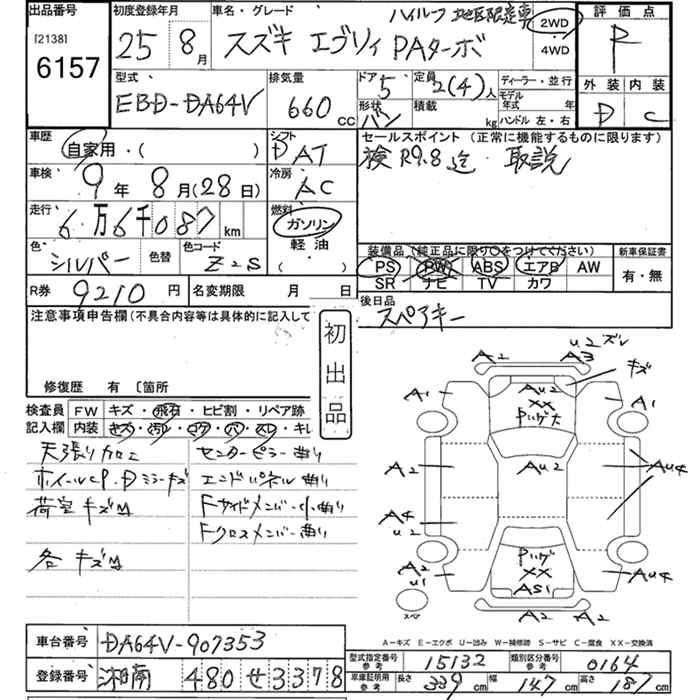 出品番号
[2138]
6157
初度登録年月
25年 8月
車名・グレード
ハイルーフ 地区限定車
スズキ エブリィ PAターボ
2WD
4WD
評価点
R
外装 内装
D C
型式
EBD-DA64V
排気量
660 CC
ドア
5
定員
2(4)人
形状
バン
積載 kg
ディーラー・並行
モデル年式 年
ハンドル 左・右
車歴
自家用・( )
シフト
DAT
車検
9年 8月(28日)
冷房
AC
走行
6万6千087 km
燃料
ガソリン
軽油
( )
色
シルバー
色替
色コード
Z2S
セールスポイント (正常に機能するものに限ります)
検R9.8迄 取説
装備品 (純正品に限り○をつけてください)
PS PW ABS エアB AW
SR ナビ TV カワ
新車保証書
有・無
R券 9210 円
名変期限 月 日
後日品
スペアキー
注意事項申告欄 (不具合内容等は具体的に記入して
修復歴 有 〔箇所
初出品
検査員記入欄
FW キズ・飛石・ヒビ割・リペア跡
内装 キズ・汚レ・コゲ・穴・スレ・キレ
天張り加工
ホイールCP.Dミラーキズ
荷室キズM
各キズM
センターピラー曲り
エンドパネル曲り
Fサイドメンバー小曲り
Fクロスメンバー曲り
A2 A3 U2 ズレ
キズ
A1 AU2 XX A1
Pハゲ大
A2 AU2 AU4
A4 U2
Pハゲ
XX
A2 U1 AS1 AU4
スペア
A2 A2
A-キズ E-エクボ U-凹み W-補修跡 S-サビ C-腐食 XX-交換済
車台番号 DA64V-907353
登録番号 湘南 480 せ 3378
型式指定番号 参考 15132
類別区分番号 参考 0164
車庫証明用 参考 長さ 339 cm 幅 147 cm 高さ 187 cm